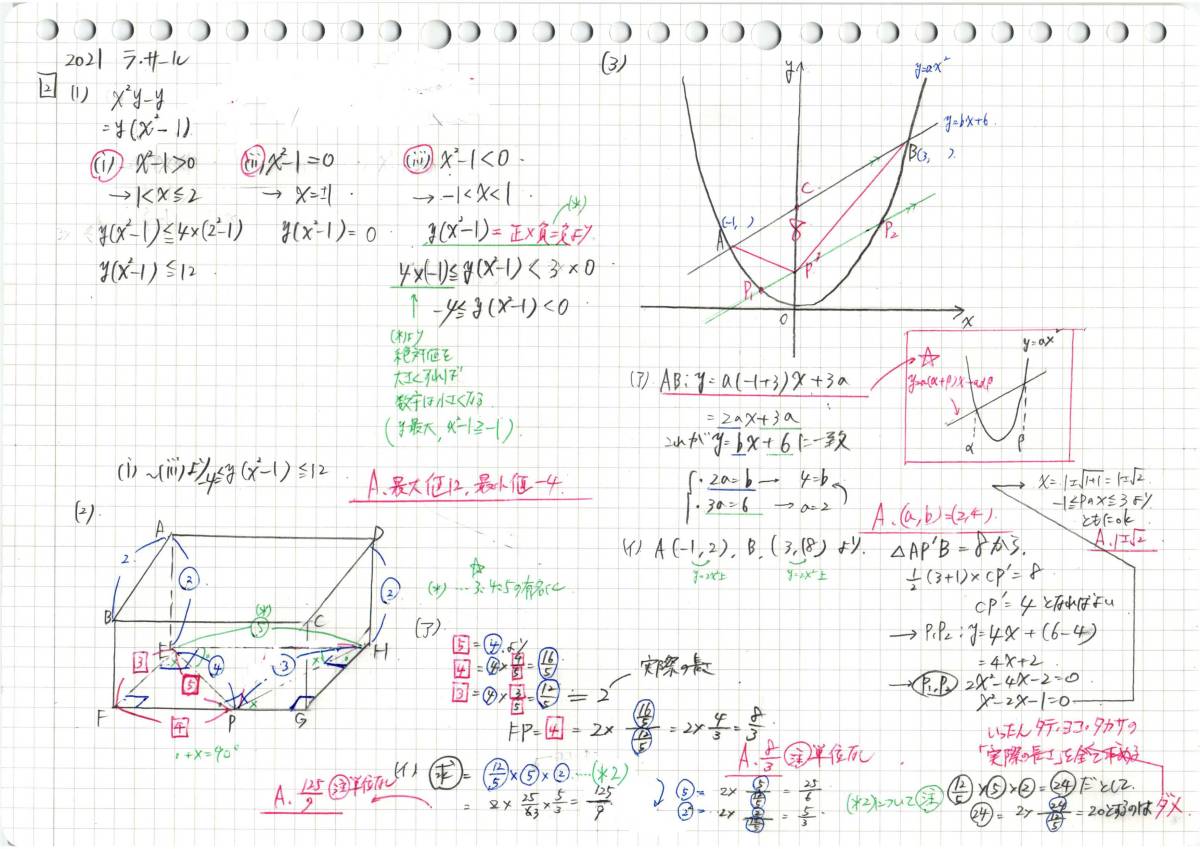 2021 ラ・サール
2
(1) x²y-y
=y(x²-1)
(i) x²-1>0
→1<x≦2
y(x²-1)≦4×(2²-1)
y(x²-1)≦12
(ii) x²-1=0
→ x=±1
y(x²-1)=0
(iii) x²-1<0
→-1<x<1
(*)
y(x²-1)=正×負=負より
4×(-1)≦y(x²-1)<3×0
-4≦y(x²-1)<0
(*)より
絶対値を
大きくすれば
数字は小さくなる
(y最大, x²-1≧-1)
(i)~(iii)より -4≦y(x²-1)≦12
A. 最大値12, 最小値-4
(2)
A
D
2
②
②
B
C
(*)
⑤
E
H
3
④
③
5
F
P
G
4
○+×=90°
(*) … 3:4:5の有名に
(ア)
5=④より
4=④×4/5=16/5
3=④×3/5=12/5=2
実際の長
FP=4=2×(16/5)/(12/5)=2×4/3=8/3
A. 8/3 注単位なし
(イ) 求=12/5×⑤×② …(*2)
=2×25/6×5/3=125/9
A. 125/9 注単位なし
⑤=2×5/(12/5)=25/6
②=2×2/(12/5)=5/3
(*2)について注
いったんタテ・ヨコ・タカサの
「実際の長さ」を全て求める
12/5×⑤×②=24だとして
24=2×24/(12/5)=20とするのはダメ
(3)
y
y=ax²
y=bx+6
B(3, )
C
(-1, )
A
8
P'
P₁
P₂
O
x
(ア) AB:y=a(-1+3)x+3a
=2ax+3a
これがy=bx+6に一致
・2a=b → 4=b
・3a=6 → a=2
A. (a,b)=(2,4)
☆
y=a(α+β)x-aαβ
y=ax²
α
β
(イ) A(-1,2), B(3,18)より
y=2x²上
y=2x²上
△AP'B=8から
1/2(3+1)×CP'=8
CP'=4となればよい
→P₁P₂:y=4x+(6-4)
=4x+2
→P₁,P₂ 2x²-4x-2=0
x²-2x-1=0
x=1±√1+1=1±√2
-1≦Pのx≦3より
ともにok
A. 1±√2